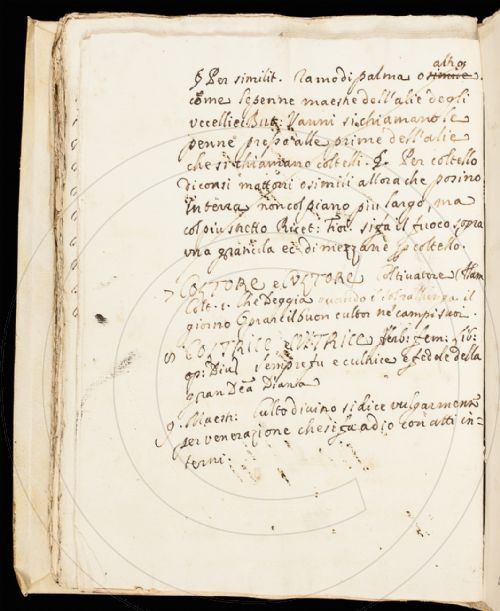 altro
§ Per similit. Ramo di palma o simile.
come le penne maestre dell'alie degli
uccelli e But: Vanni si chiamano le
penne presso alle prime dell'alie
che si chiamano coltelli. §. Per coltello
diconsi mattoni o simili allora che posino
in terra non col piano piu largo, ma
col piu stretto Ricet: Fior. si fa il fuoco sopra
una graticula ec. di mezzane p coltello.
7 COLTORE e CULTORE Coltivatore Alam
Colt. 1. Che veggia quando il
giorno E parte il buon cultor ne' campi suoi
8 COLTRICE CULTRICE Verbi: fem: lib:
op: Div: sempre fu e cultrice e fedele della
gran Dea Diana
9. Maestr: Culto divino si dice vulgarmente
per venerazione che si fa a dio con atti in=
terni.